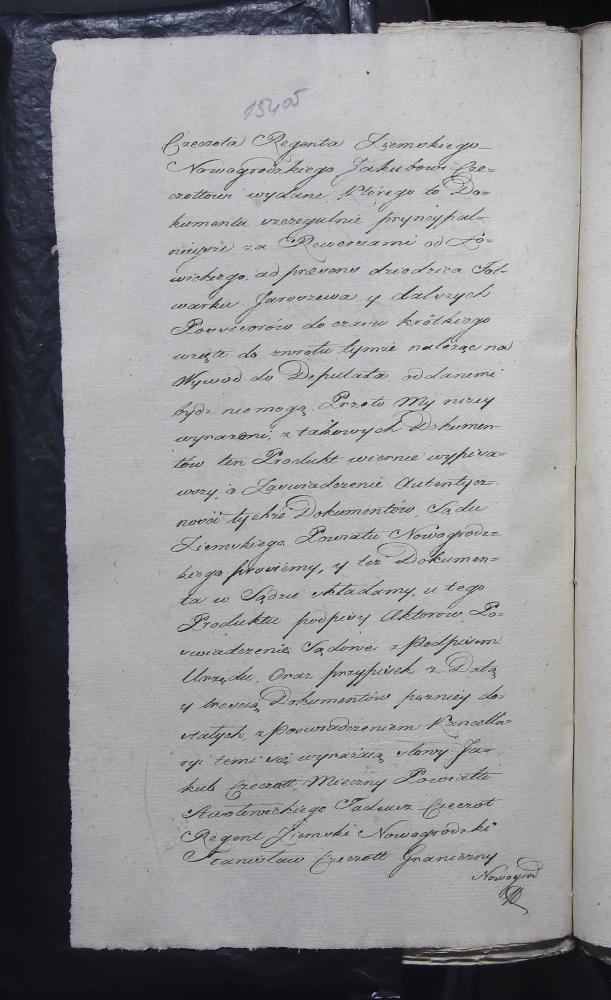 15405
Czeczota Regenta Ziemskiego
Nowogrodzkiego Jakubowi Cze=
czottowi wydane, którego to Do=
kumenta szczegulnie pryncypal=
nieysze za Rewersami od Ło=
wickiego, ad præsens dziedzica Fol=
warku Jaroszewa y dalszych
Possesorów do czasu krótkiego
wzięte do zwrotu tymże należąc na
Wywod do Deputata oddanemi
bydz niemogą. Przeto My niżey
wyrażeni, z takowych Dokumen=
tów ten Produkt wiernie wypisa=
wszy, o Zaswiadczenie Autentycz=
ności tychże Dokumentów, Sądu
Ziemskiego Powiatu Nowogrodz=
kiego prosiemy, y też Dokumen=
ta w Sądzie składamy, u tego
Produktu podpisy Aktorow, Po=
swiadczenie Sądowe z Podpisem
Urzędu, Oraz przypisek z Datą
y trescią Dokumentów pozniey do=
stałych, z Poswiadczeniem Kancella=
ryi temi się wyrażaią słowy. Ja=
kub Czeczott Mieczny Powiatu
Starodubowskiego Tadeusz Czeczot
Regent Ziemski Nowogrodzki
Stanisław Czeczott Graniczny
Nowogrod